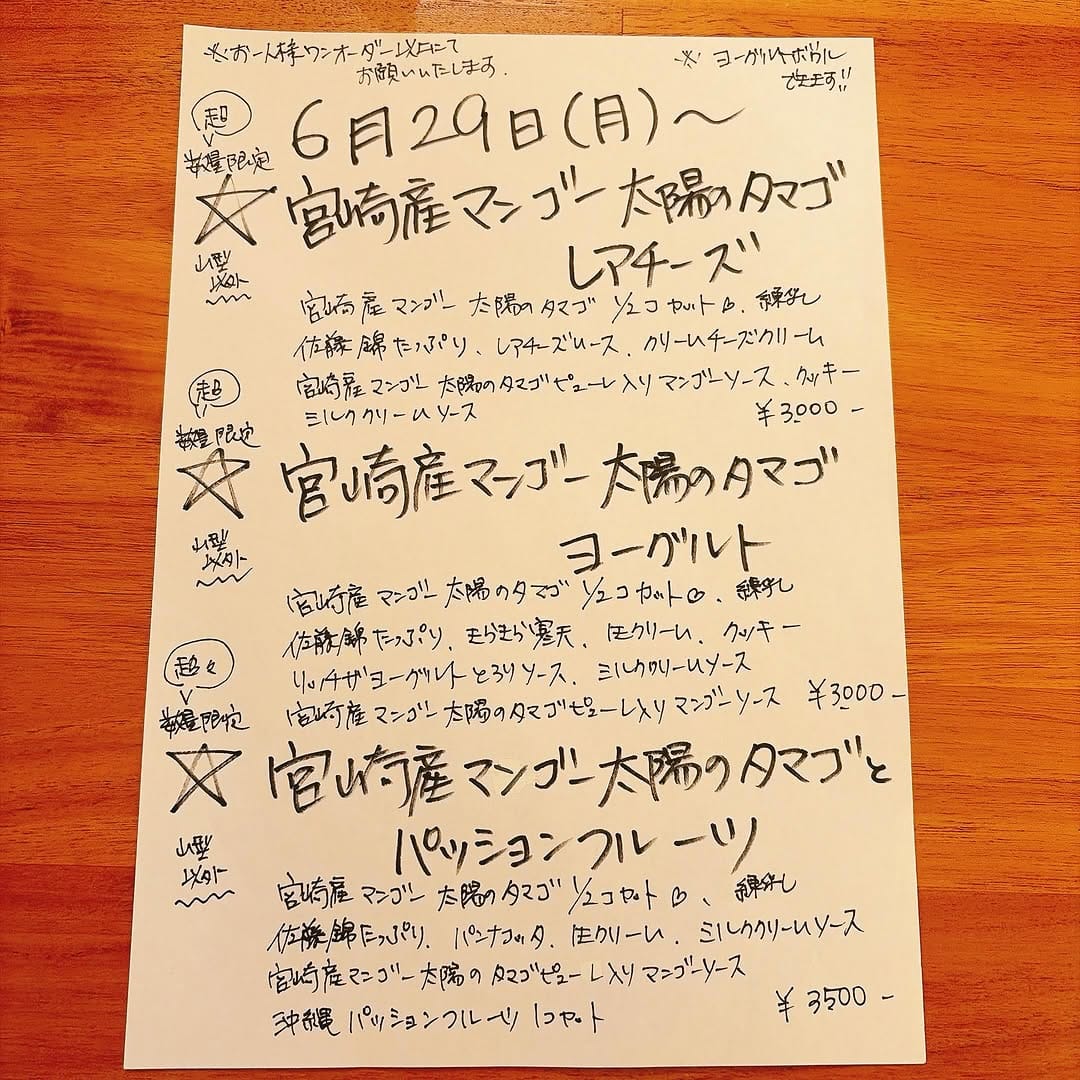 ※お一人様ワンオーダー以上にて
お願いいたします.
※ ヨーグルトボウル
できます!!
6月29日(月)〜
超
数量限定
☆
山型
以外
宮崎産マンゴー 太陽のタマゴ
レアチーズ
宮崎産マンゴー 太陽のタマゴ 1/2コカット♡、練乳
佐藤錦たっぷり、レアチーズソース、クリームチーズクリーム
宮崎産マンゴー 太陽のタマゴピューレ入りマンゴーソース、クッキー
ミルククリームソース
¥3000-
超
数量限定
☆
山型
以外
宮崎産マンゴー 太陽のタマゴ
ヨーグルト
宮崎産マンゴー 太陽のタマゴ 1/2コカット♡、練乳
佐藤錦たっぷり、きらきら寒天、生クリーム、クッキー
リッチザヨーグルトとろりソース、ミルククリームソース
宮崎産マンゴー 太陽のタマゴピューレ入りマンゴーソース ¥3000-
超々
数量限定
☆
山型
以外
宮崎産マンゴー太陽のタマゴと
パッションフルーツ
宮崎産マンゴー 太陽のタマゴ 1/2コカット♡、練乳
佐藤錦たっぷり、パンナコッタ、生クリーム、ミルククリームソース
宮崎産マンゴー太陽のタマゴピューレ入りマンゴーソース
沖縄パッションフルーツ 1コカット
¥3500-